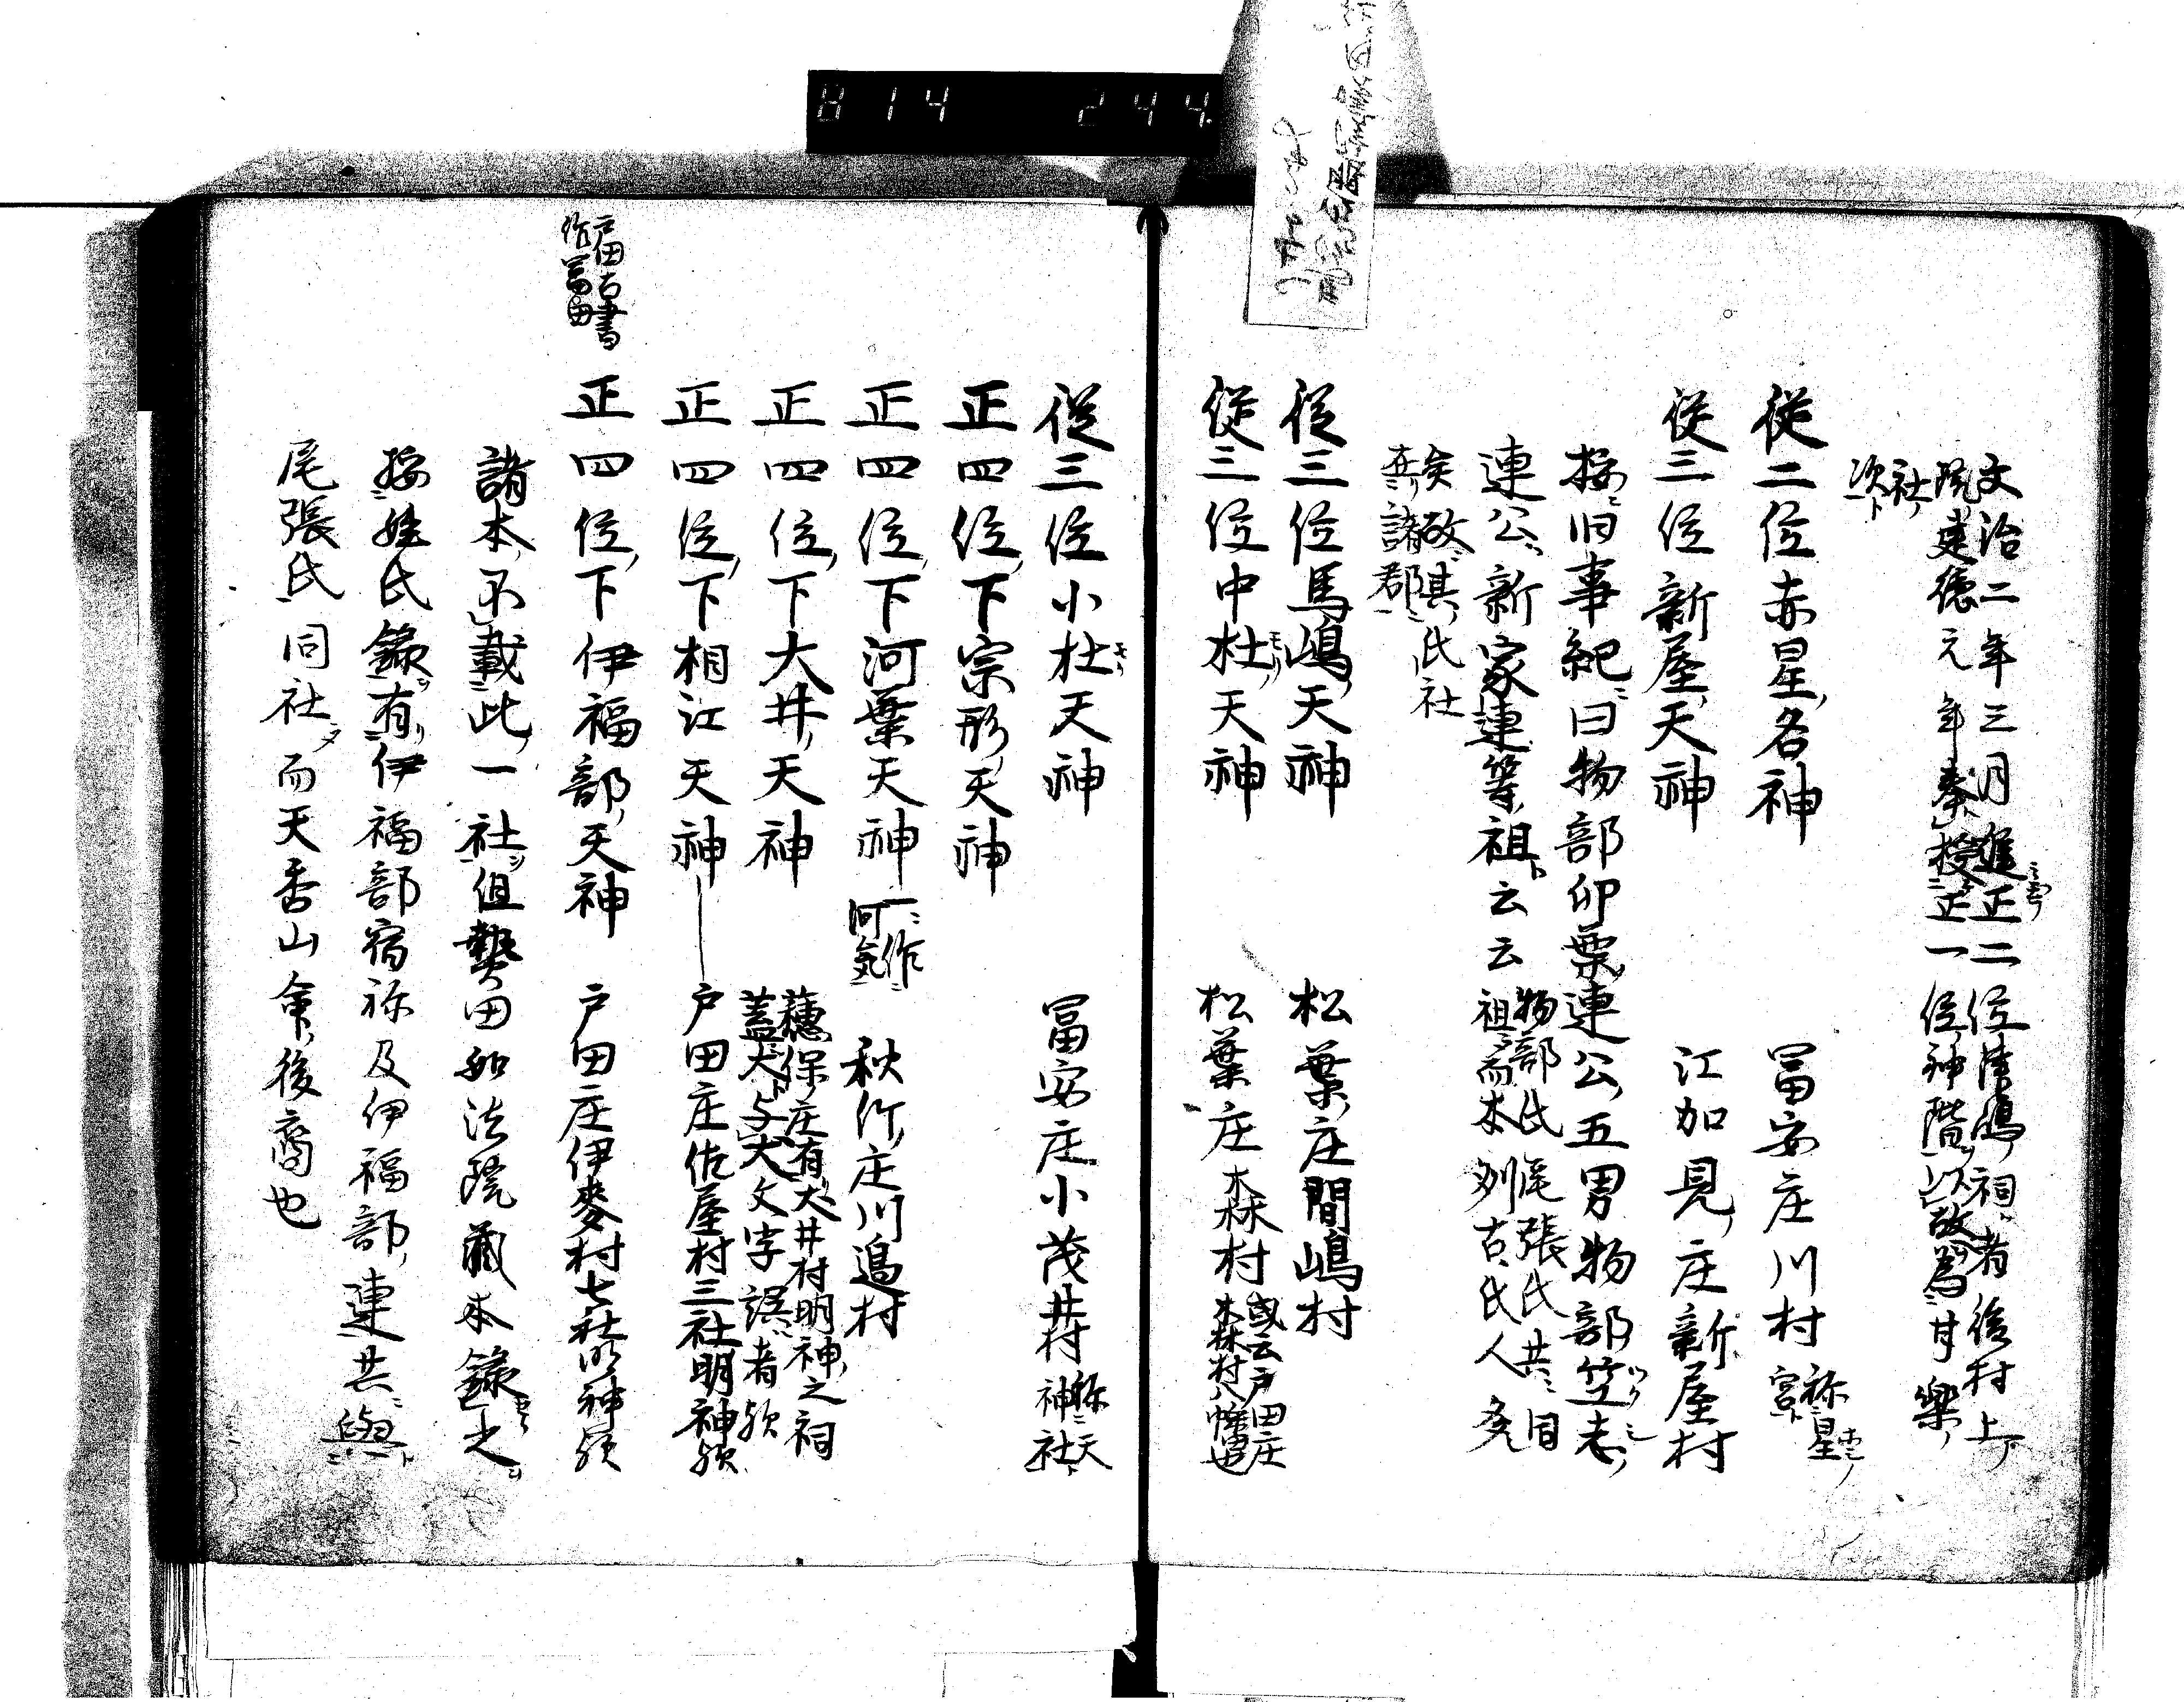 814 244
文治二年三月進正二位津嶋祠者後村上
院建徳元年奉授正一位神階以故為甘樂
社次
従二位赤星名神 冨安庄川村 称星宮
従三位新屋天神 江加見庄新屋村
按旧事紀曰物部卯票連公五男物部笠志
連公新家連等祖云云 物部氏尾張氏共同
祖而本列古氏人多
矣故其氏社
在諸郡
従三位馬嶋天神 松葉庄間嶋村
従三位中杜天神 松葉庄木森村 或云戸田庄
木森村八幡也
従三位小杜天神 冨安庄小茂井村 称天
神社
正四位下宗形天神
正四位下河葉天神 一作
河氣 秋竹庄川邉村
正四位下大井天神 穂保庄有犬井村明神之祠
蓋犬与大文字誤者欤
正四位下相江天神 戸田庄佐屋村三社明神欤
戸田古書
作富田
正四位下伊福部天神 戸田庄伊麥村七社明神欤
諸本不載此一社但贄田如法院蔵本錄之
按姓氏錄有伊福部宿祢及伊福部連共與
尾張氏同社而天香山命後裔也